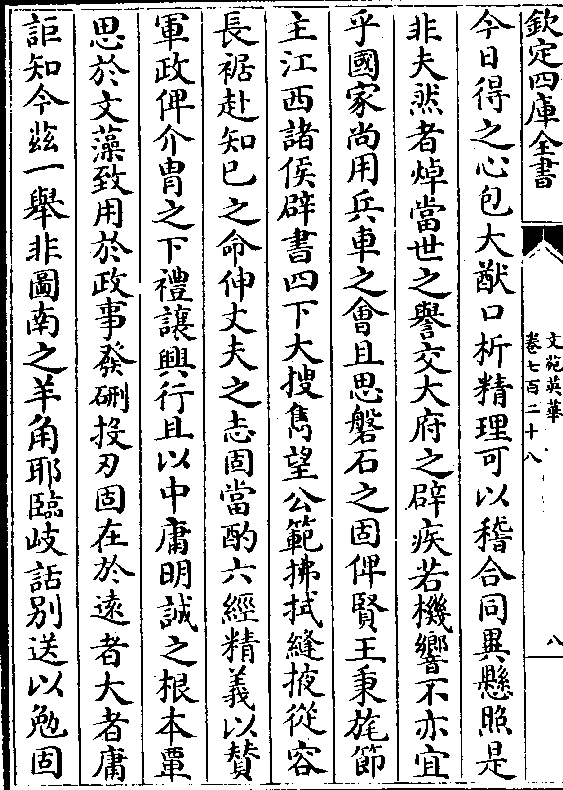 欽定四庫全書
文苑英華
卷七百二十八
八
今日得之心包大猷口析精理可以稽合同異懸照是
非夫然者焯當世之譽交大府之辟疾若機響不亦宜
乎國家尚用兵車之會且思磐石之固俾賢王秉旄節
主江西諸侯辟書四下大搜雋望公範拂拭縫掖從容
長裾赴知已之命伸丈夫之志固當酌六經精義以贊
軍政俾介胄之下禮讓興行且以中庸明誠之根本覃
思於文藻致用於政事發硎投刃固在於遠者大者庸
詎知今玆一舉非圖南之羊角耶臨岐話別送以勉固